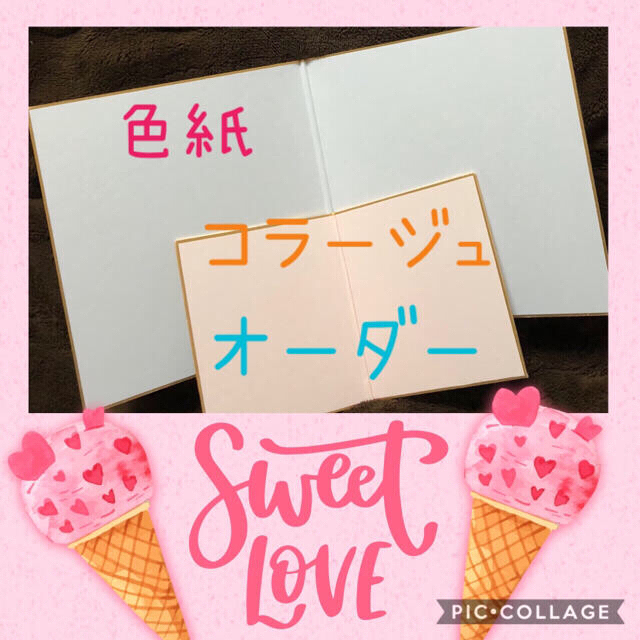 色紙
コラージュ
オーダー
Sweet
LOVE
PIC•COLLAGE